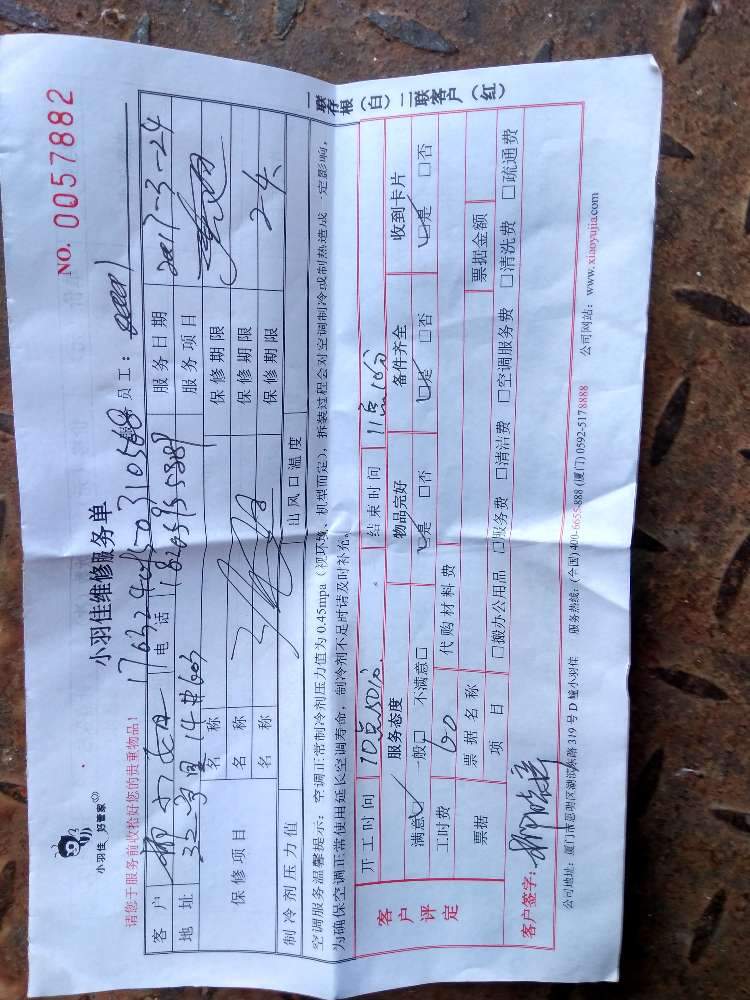 小羽佳 好管家
小羽佳维修服务单
NO. 0057882
请您于服务前收拾好您的贵重物品!
员工:
客户
电话
服务日期 2017-3-24
地址
服务项目
保修项目
名称
保修期限
名称
保修期限
名称
保修期限
制冷剂压力值
出风口温度
空调服务温馨提示:空调正常制冷剂压力值为0.45mpa(视环境、机型而定),拆装过程会对空调制冷或制热造成一定影响,
为确保空调正常使用延长空调寿命,制冷剂不足时请及时补充。
一联存根(白)二联客户(红)
客户评定
开工时间 10点50分
结束时间 11点16分
服务态度
物品完好
备件齐全
收到卡片
满意 一般□ 不满意□
□是 □否
□是 □否
□是 □否
工时费 60
代购材料费
票据
票据名称
票据金额
项目
□拨办公用品 □服务费 □清洁费 □空调服务费 □清洗费 □疏通费
客户签字:
公司地址:厦门市思明区湖滨东路319号D幢小羽佳 服务热线:(全国)400-6655-888 (厦门) 0592-5178888 公司网站:www.xiaoyujia.com